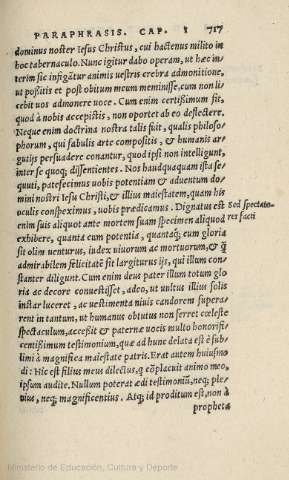 PARAPHRASIS. CAP. I 717
dominus noster Iesus Christus, cui hactenus milito in
hoc tabernaculo. Nunc igitur dabo operam, ut hæc in-
terim sic infigātur animis uestris crebra admonitione,
ut possitis et post obitum meum meminisse, cum non li
cebit uos admonere uoce. Cum enim certissimum sit,
quod à nobis accepistis, non oportet ab eo deflectere.
Neque enim doctrina nostra talis fuit, qualis philoso-
phorum, qui fabulis arte compositis, & humanis ar
gutijs persuadere conantur, quod ipsi non intelligunt,
inter se quoq; dissentientes. Nos haudquaquam ista se/
quuti, patefecimus uobis potentiam & aduentum do/
mini nostri Iesu Christi, & illius maiestatem, quam his
oculis conspeximus, uobis prædicamus. Dignatus est
Sed spectato-
res facti
enim suis aliquot ante mortem suam specimen aliquod
exhibere, quanta cum potentia, quantaq; cum gloria
sit olim uenturus, iudex uiuorum ac mortuorum, & q̃
admirabilem felicitatē sit largiturus ijs, qui illum con/
stanter diligunt. Cum enim deus pater illum totum glo
ria ac decore conuestisset, adeo, ut uultus illius solis
instar luceret, ac uestimenta niuis candorem supera/
rent in tantum, ut humanus obtutus non ferret cœleste
spectaculum, accessit & paternæ uocis multo honorifi-
centissimum testimonium, quæ ad hunc delata est è sub/
limi à magnifica maiestate patris. Erat autem huiusmo
di: Hic est filius meus dilectus, q̃ cōplacuit animo meo,
ipsum audite. Nullum poterat ædi testimoniū, neq; ple/
nius, neq; magnificentius. Atq; id proditum est, non à
propheta
Ministerio de Educación, Cultura y Deporte